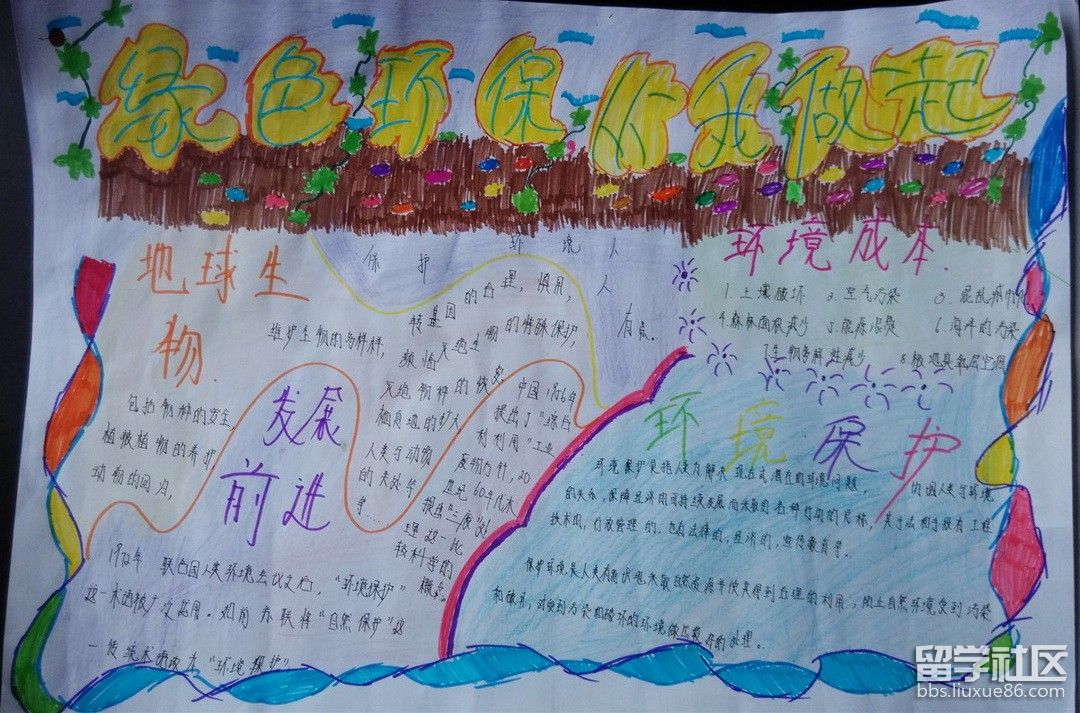 绿色环保 从我做起
地球生
物
保护 环境 人人
有责。
维护生物的多样性,
转基因的合理,慎用,
濒临灭绝生物的特殊保护,
灭绝物种的恢复
栖息地的扩大
人类与动物
的关系等
等....
包括物种的安全,
植被植物的养护,
动物的回归,
发展
前进
中国1956年
提出了"综合
利用"工业
废物方针,20
世纪60年代末
提出"三废"处
理这一比
较科学的
概念。
1972年 联合国人类环境会议文后,"环境保护"
这一术语被广泛采用。如前苏联将"自然保护"这
一传统术语改为"环境保护"
环境成本.
1.土壤破坏 2.空气污染 3.混乱
4.森林面积减少 5.能源浪费 6.海洋的污染
7.生物多样性减少 8.极地臭氧层空洞
环境保护
环境保护是指人类为解决现在或潜在的环境问题,协调人类与环境
的关系,保障经济的可持续发展而采取的各种行动的总称,其方法和手段有工程
技术的,行政管理的,也有法律的,经济的,宣传教育等。
保护环境是人类有意识地保护自然资源并使其得到合理的利用,防止自然环境受到污染
和破坏,对受到污染和破坏的环境做好的处理。
留学社区
bbs.liuxue86.com